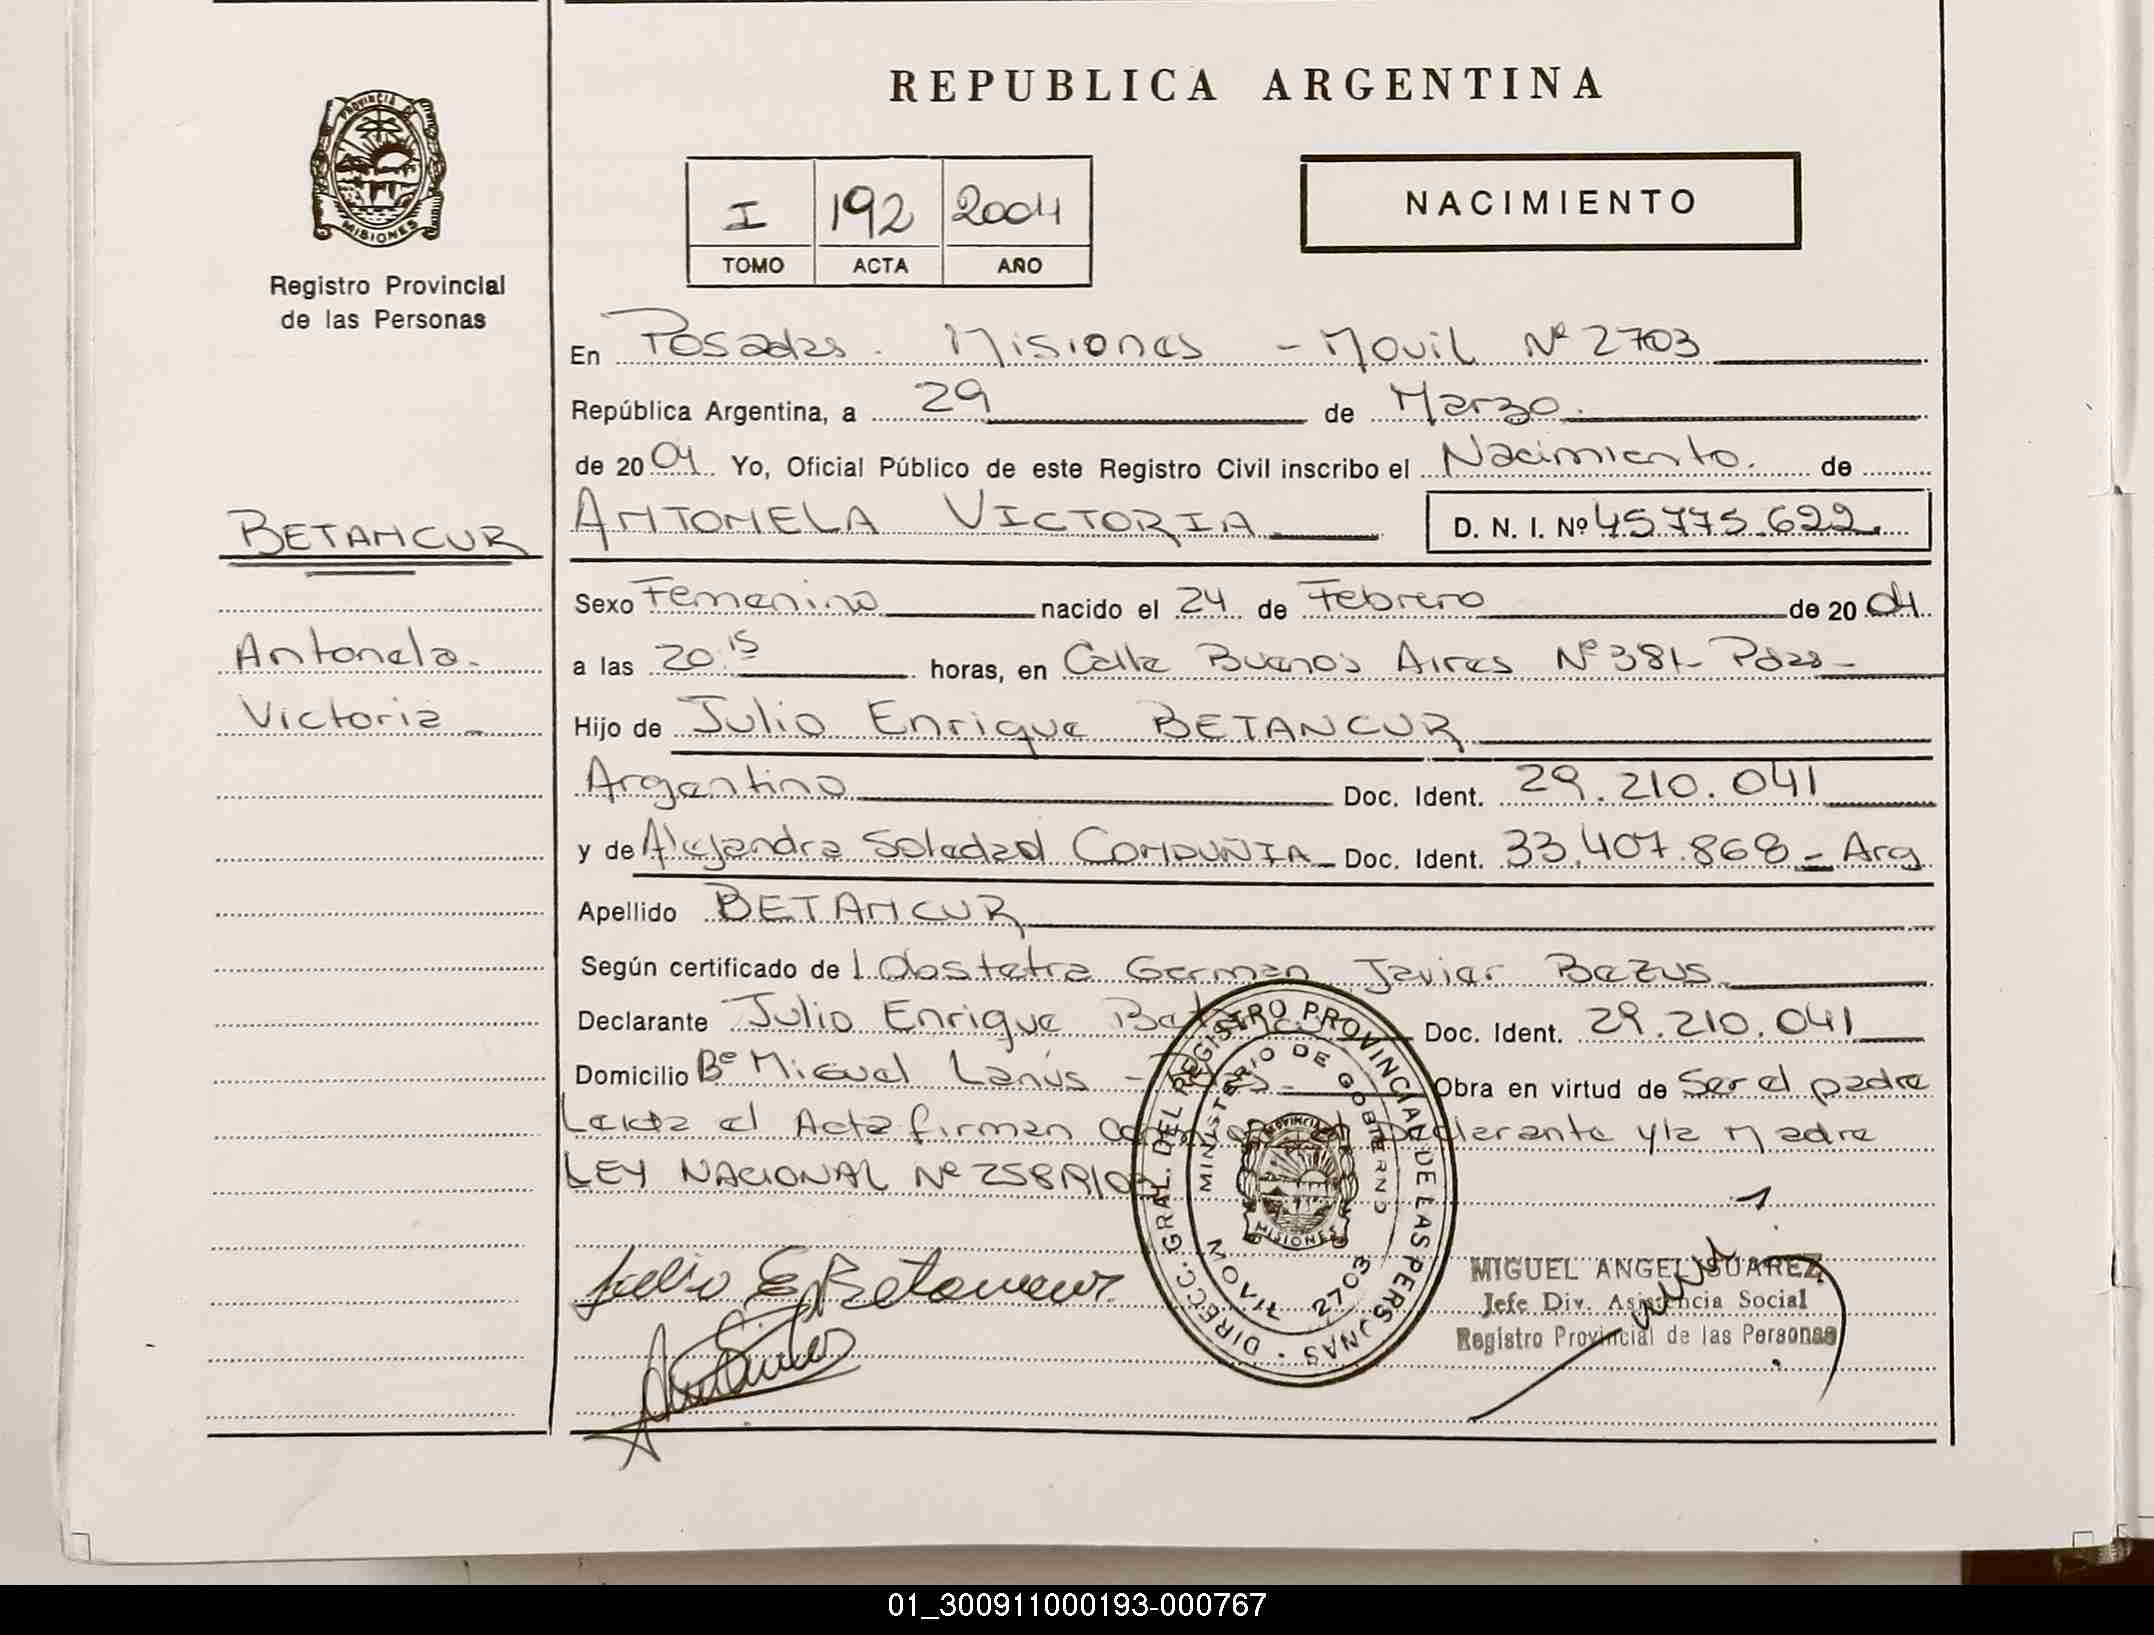 REPUBLICA ARGENTINA
PROVINCIA DE
MISIONES
Registro Provincial
de las Personas
I 192 2004
TOMO ACTA AÑO
NACIMIENTO
En Posadas. Misiones - Movil Nº 2703
República Argentina, a 29 de Marzo.
de 2004. Yo, Oficial Público de este Registro Civil inscribo el Nacimiento. de
BETANCUR
ANTONELA VICTORIA D. N. I. Nº 45775.622
Sexo Femenino nacido el 24 de Febrero de 2004.
Antonela.
a las 20.15 horas, en Calle Buenos Aires Nº 381- Pdas-
Victoria
Hijo de Julio Enrique BETANCUR
Argentino Doc. Ident. 29.210.041
y de Alejandra Soledad Doc. Ident. 33.407.868 - Arg
Apellido BETANCUR
Según certificado de Obstetra German Javier Bazus
Declarante Julio Enrique Doc. Ident. 29.210.041
Domicilio Bº Miguel Lanús - Obra en virtud de Ser el padre
Leida el Acta firman Declarante y la Madre
LEY NACIONAL Nº
DIRECC. GRAL. DEL REGISTRO PROVINCIAL DE LAS PERSONAS
MINISTERIO DE GOBIERNO
PROVINCIA DE
MISIONES
MOVIL 2703
Julio E. Betancur
MIGUEL ANGEL SUAREZ
Jefe Div. Asistencia Social
Registro Provincial de las Personas
01_300911000193-000767